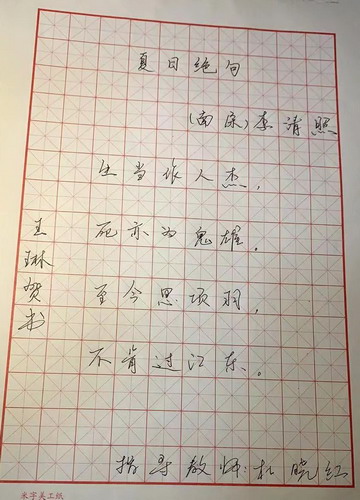 夏日绝句
(南宋)李清照
生当作人杰,
死亦为鬼雄。
至今思项羽,
不肯过江东。
王琳贺书
指导教师:杜晓红
米字美工纸